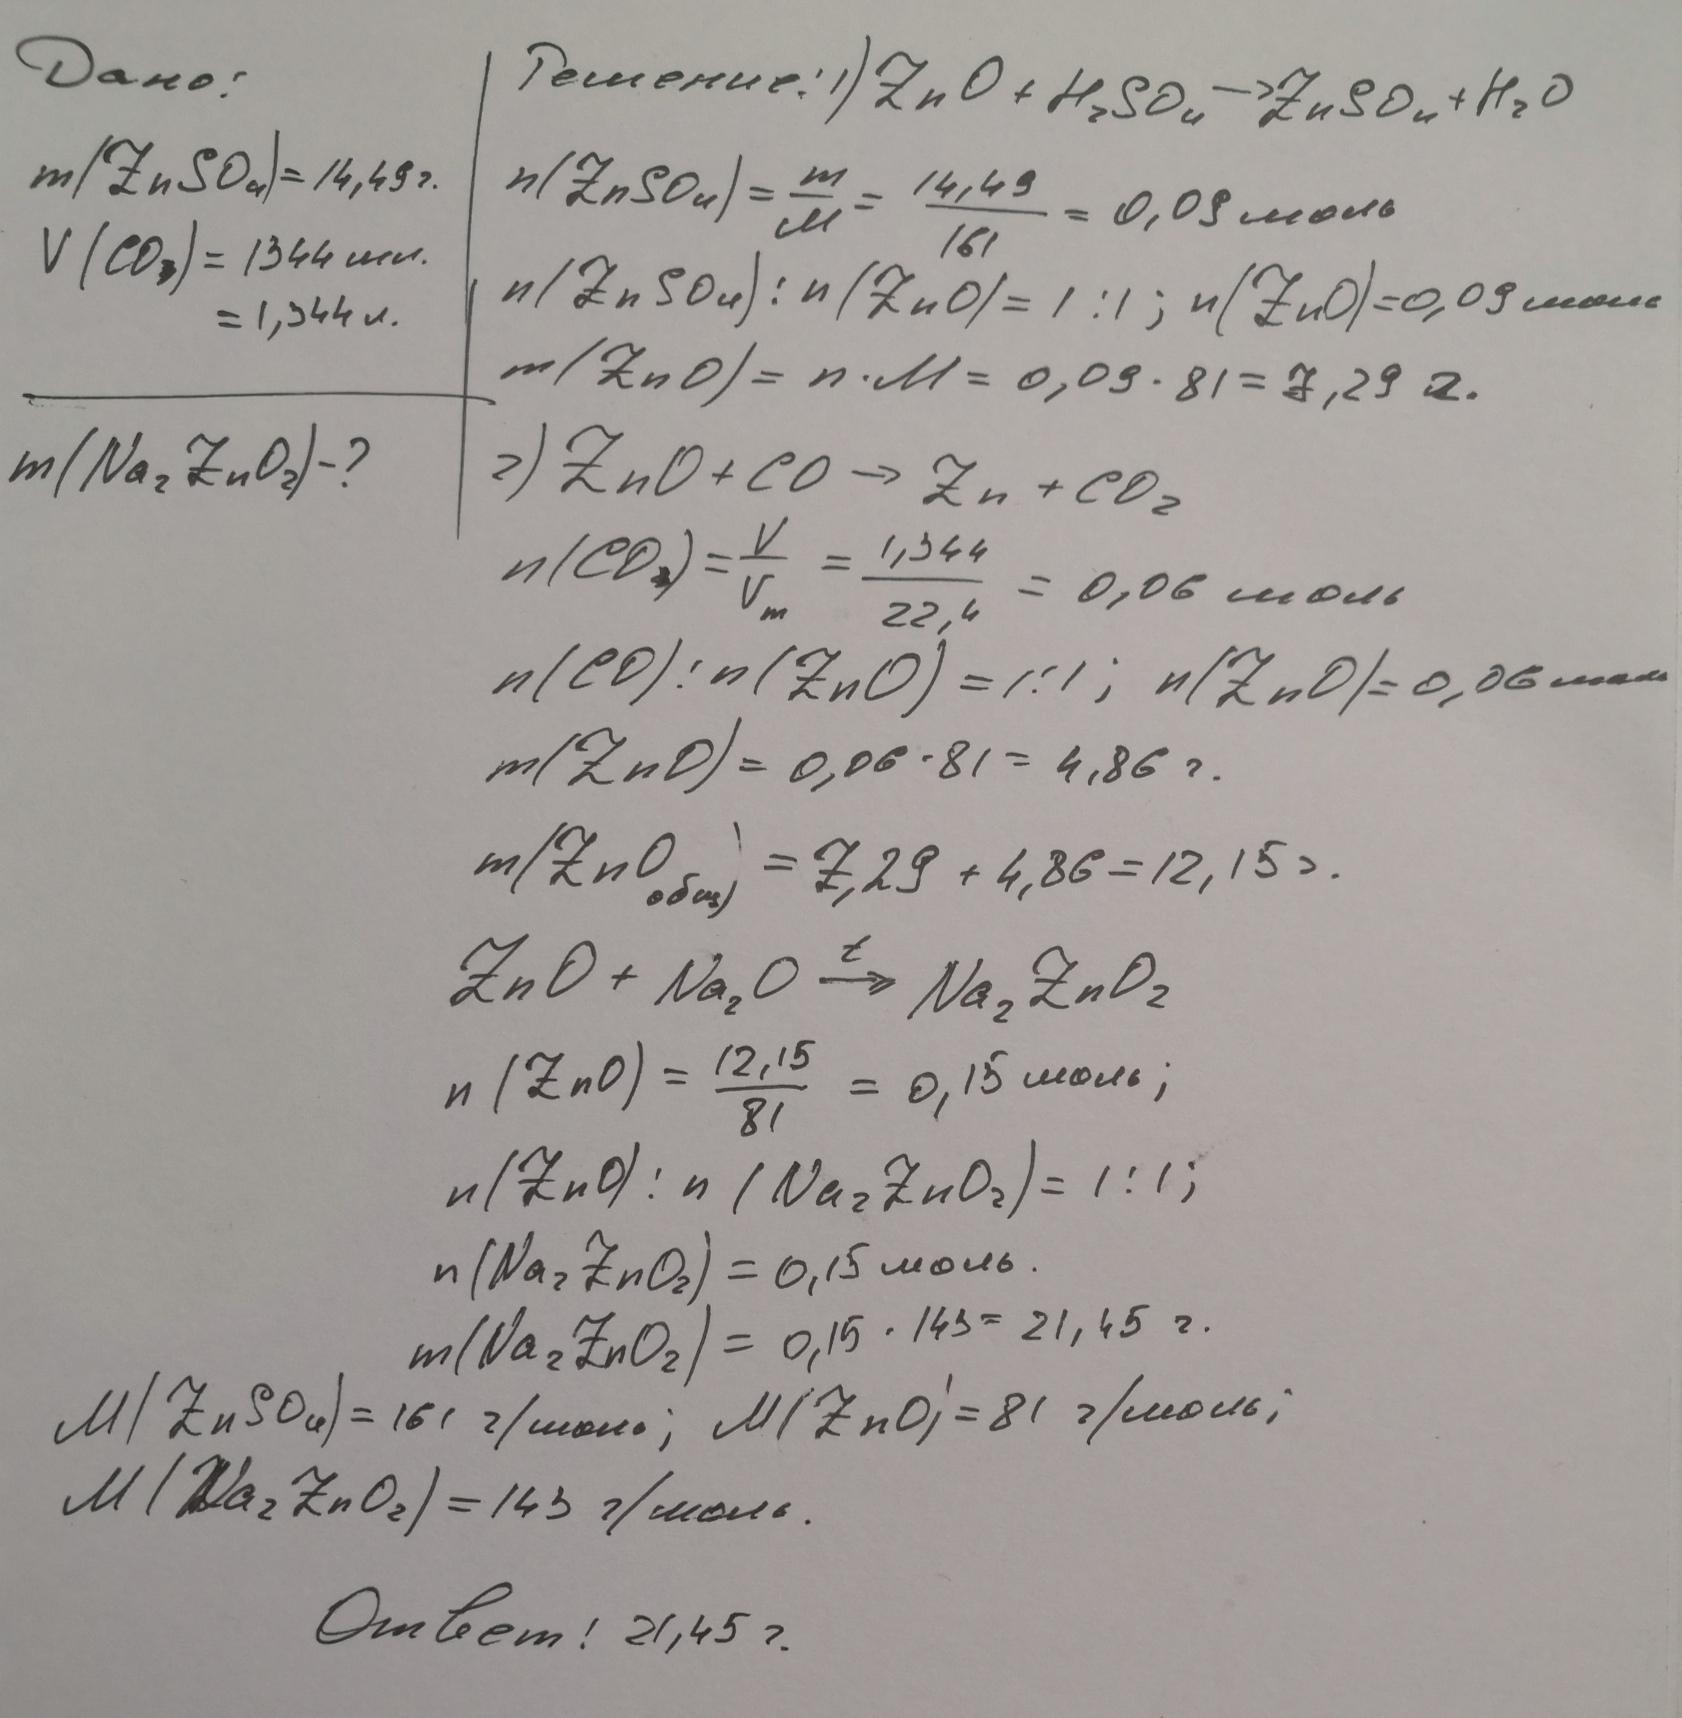 Дано:
m(ZnSO₄)=14,49г.
V(CO₂)=1344 мл.
=1,344л.
m(Na₂ZnO₂)-?
Решение: 1) ZnO + H₂SO₄ → ZnSO₄ + H₂O
n(ZnSO₄) = m/M = 14,49/161 = 0,09 моль
n(ZnSO₄) : n(ZnO) = 1:1; n(ZnO)=0,09 моль
m(ZnO) = n·M = 0,09·81 = 7,29 г.
2) ZnO + CO → Zn + CO₂
n(CO₂) = V/Vm = 1,344/22,4 = 0,06 моль
n(CO) : n(ZnO) = 1:1; n(ZnO)=0,06 моль
m(ZnO) = 0,06·81 = 4,86 г.
m(ZnO общ) = 7,29 + 4,86 = 12,15 г.
ZnO + Na₂O t→ Na₂ZnO₂
n(ZnO) = 12,15/81 = 0,15 моль;
n(ZnO) : n(Na₂ZnO₂) = 1:1;
n(Na₂ZnO₂) = 0,15 моль.
m(Na₂ZnO₂) = 0,15·143 = 21,45 г.
M(ZnSO₄) = 161 г/моль; M(ZnO) = 81 г/моль;
M(Na₂ZnO₂) = 143 г/моль.
Ответ: 21,45 г.